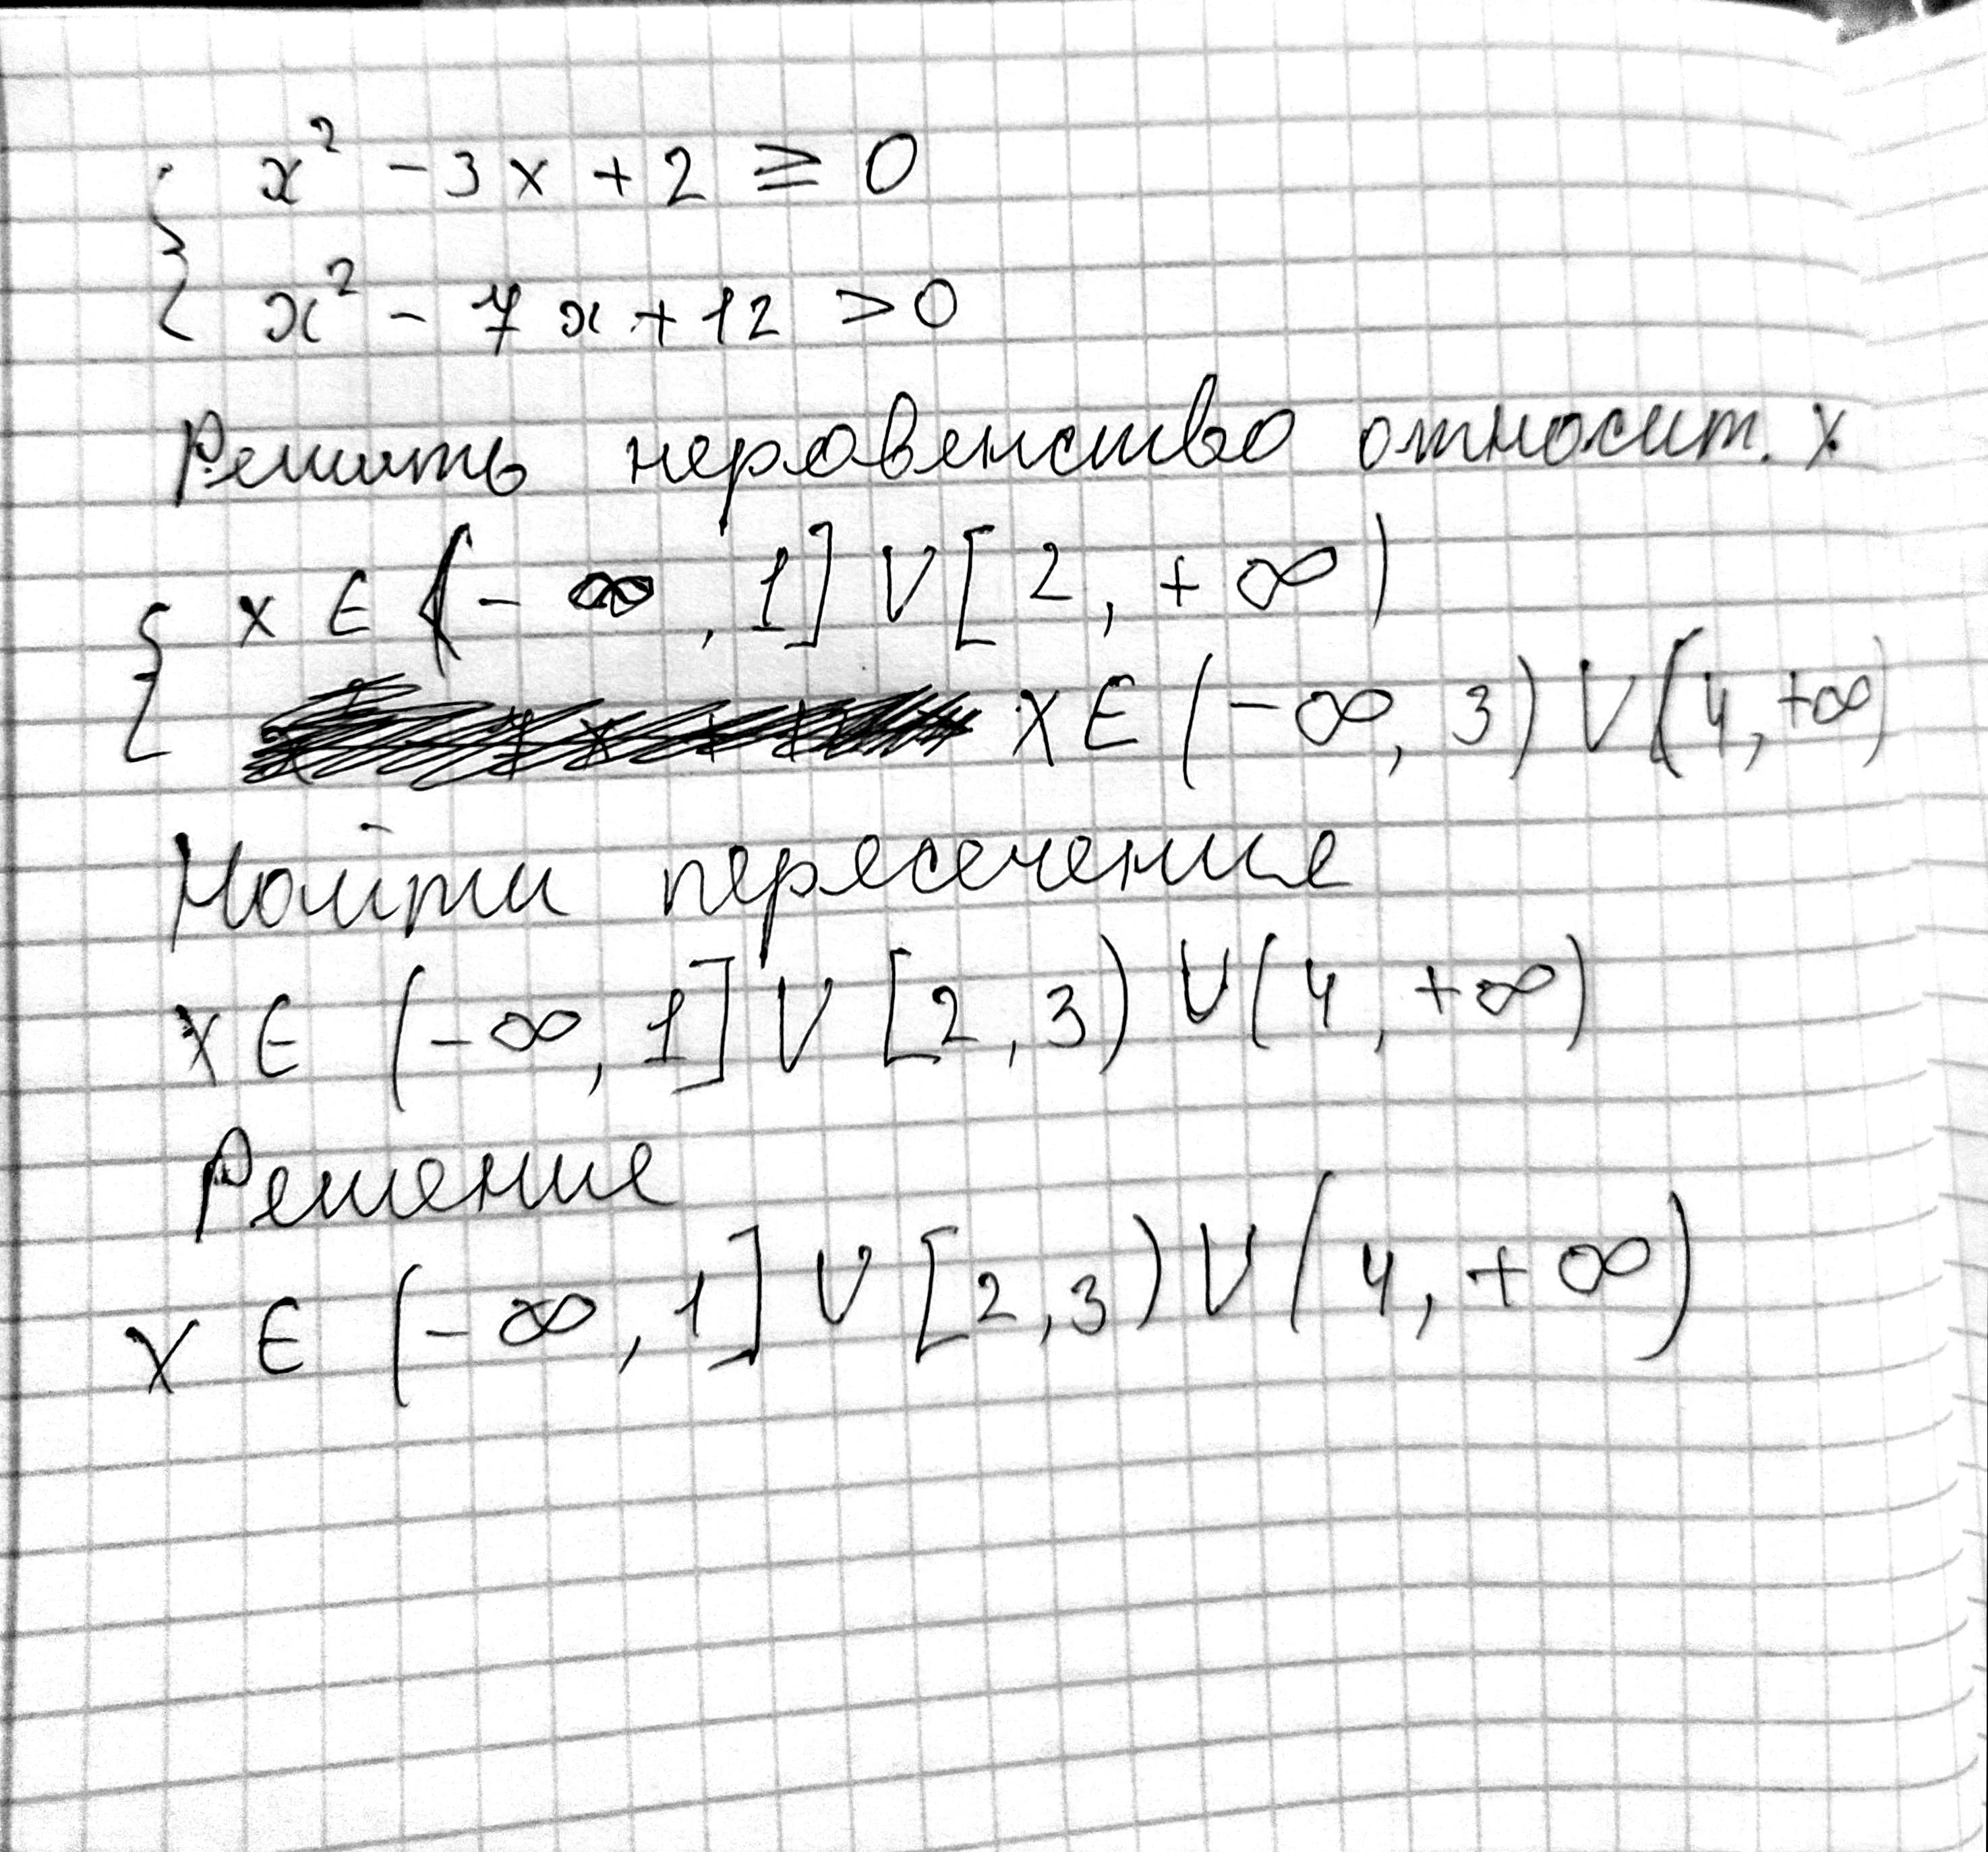 { x² - 3x + 2 ≥ 0
{ x² - 7x + 12 > 0
Решить неравенство относит. x
{ x ∈ (-∞, 1] ∪ [2, +∞)
{ x ∈ (-∞, 3) ∪ (4, +∞)
Найти пересечение
x ∈ (-∞, 1] ∪ [2, 3) ∪ (4, +∞)
Решение
x ∈ (-∞, 1] ∪ [2, 3) ∪ (4, +∞)